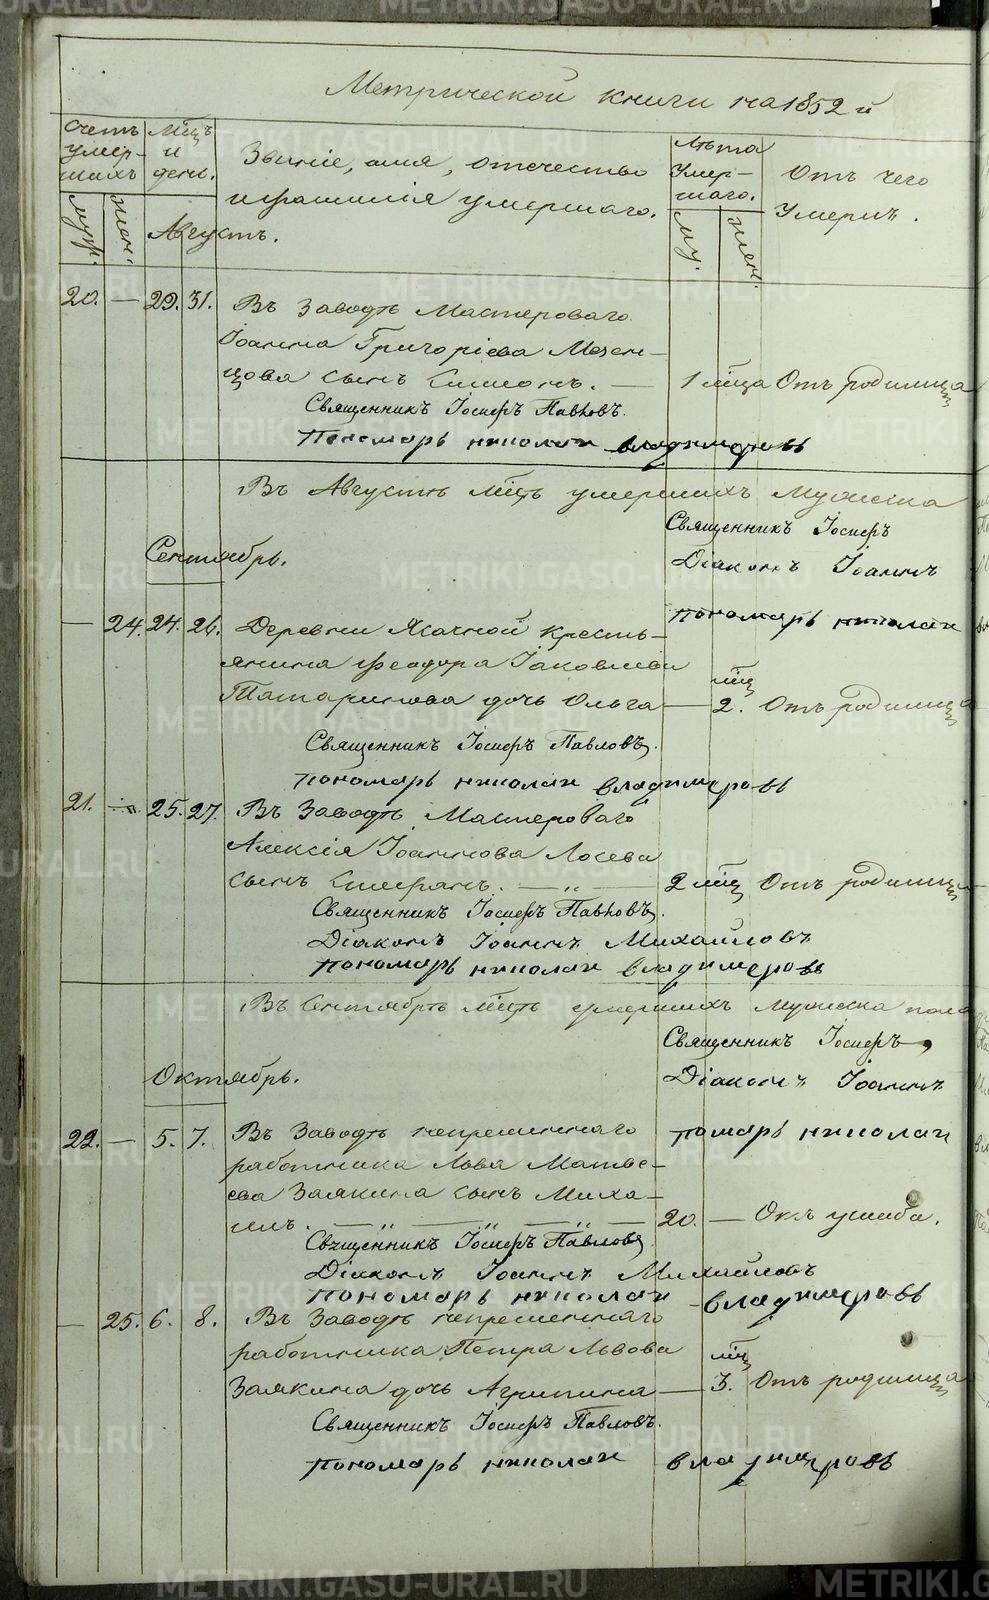 Метрической книги на 1852 й
Счетъ умер-шихъ
Мѣцъ и день.
Званіе, имя, отечество
и фамилія умершаго.
Лѣта Умер-шаго.
Отъ чего
Умеръ.
Муж.
Жен.
Августъ.
му.
жен.
20. — 29. 31. Въ Заводѣ Мастероваго
Іоанна Григоріева Мезен-
цова сынъ Симеонъ. — 1 мѣца Отъ родимца
Священникъ Іосифъ Павловъ.
Пономарь Николай Владимеровъ
Въ Августѣ мѣцѣ умершихъ Мужеска
Священникъ Іосифъ
Сентябрь.
Діаконъ Іоаннъ
Пономарь Николай
— 24. 24. 26. Деревни Ясачной кресть-
янина Феодора Іаковлева
мѣц
Татаринова дочь Ольга — 2. Отъ родимца
Священникъ Іосифъ Павловъ.
Пономарь Николай Владимеровъ
21. — 25. 27. Въ Заводѣ Мастероваго
Алексія Іоаннова Лосева
сынъ Симеонъ. — „ — 2 мѣц Отъ родимца
Священникъ Іосифъ Павловъ.
Діаконъ Іоаннъ Михайловъ
Пономарь Николай Владимеровъ
Въ Сентябрѣ мѣцѣ умершихъ Мужеска пола
Священникъ Іосифъ
Октябрь.
Діаконъ Іоаннъ
22. — 5. 7. Въ Заводѣ непременнаго
Помарь Николай
работника Льва Матве-
ева Заякина сынъ Миха-
илъ. — „ — „ — „ — 20. — Отъ ушиба.
Священникъ Іосифъ Павловъ
Діаконъ Іоаннъ Михайловъ
Пономарь Николай Владимеровъ
— 25. 6. 8. Въ Заводѣ непременнаго
работника Петра Львова
мѣц
Заякина дочь Агрипина — 3. Отъ родимца
Священникъ Іосифъ Павловъ.
Пономарь Николай Владимеровъ
METRIKI.GASO-URAL.RU